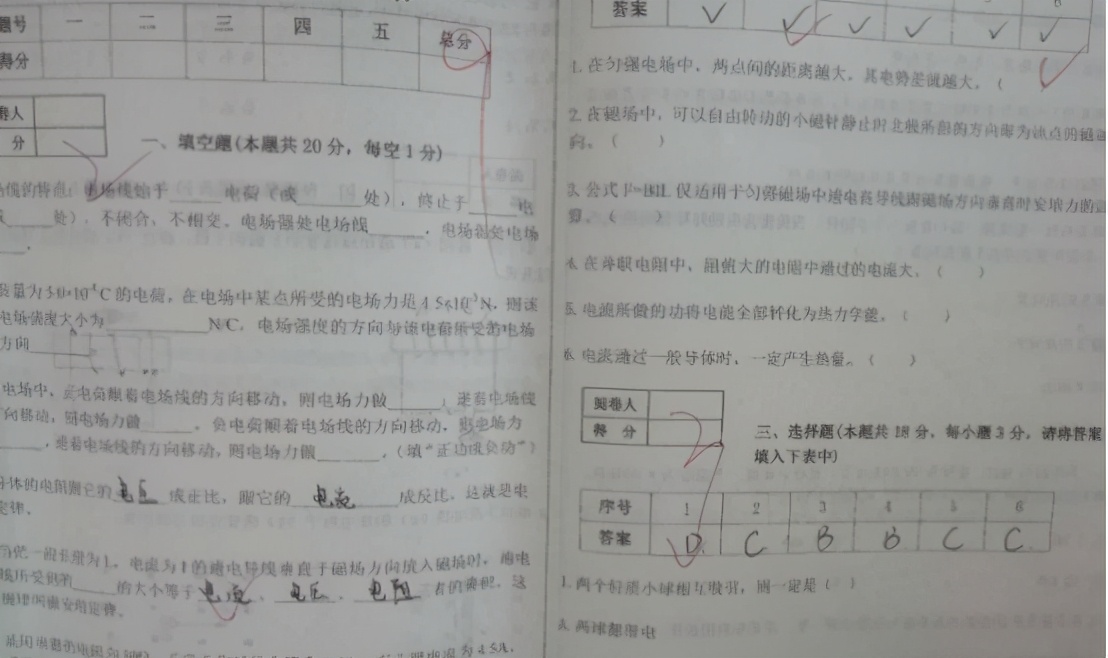 题号 一 二 三 四 五 总分
得分
卷人
分
一、填空题(本题共20分，每空1分)
电场线始于 电荷（或 处），终止于 电
处)，不闭合，不相交。电场强处电场线 ，电场
的电荷，在电场中某点所受的电场力是4.5×10⁻³N，则该
电场强度大小为 N/C，电场强度的方向与该电荷所受的电场
方向
电场中，正电荷顺着电场线的方向移动，则电场力做 ；逆着电场线
向移动，则电场力做 。负电荷顺着电场线的方向移动，则电场力
，逆着电场线的方向移动，则电场力做 。(填“正功或负功”)
导体的电阻跟它的 电压 成正比，跟它的 电流 成反比，这就是电
定律。
的通电导线垂直于磁场方向放入磁场时，通电
的大小等于 电流 、 电压 、 电阻 者的乘积。这
答案 √ √ √ √ √ √
1. 在匀强电场中，两点间的距离越大，其电势差就越大。（
2. 在磁场中，可以自由转动的小磁针静止时北极所指的方向即为该点的磁场
向。（ ）
3. 公式F=BIL仅适用于匀强磁场中通电直导线跟磁场方向垂直时安培力的
算。（ ）
4. 在串联电阻中，阻值大的电阻中通过的电流大。（ ）
5. 电流所做的功将电能全部转化为热力学能。（ ）
6. 电流通过一般导体时，一定产生热量。（ ）
阅卷人
得 分
三、选择题(本题共18分，每小题3分，请将答案
填入下表中)
序号 1 2 3 4 5 6
答案 D. C B B C C
1. 两个轻质小球相互吸引，则一定是（ ）
A. 两球都带电